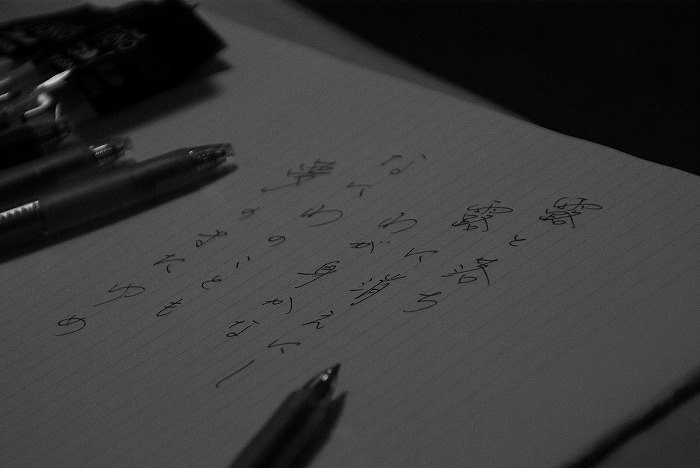 露と落ち
露と消えにし
わが身かな
なにわのことも
夢のまたゆめ